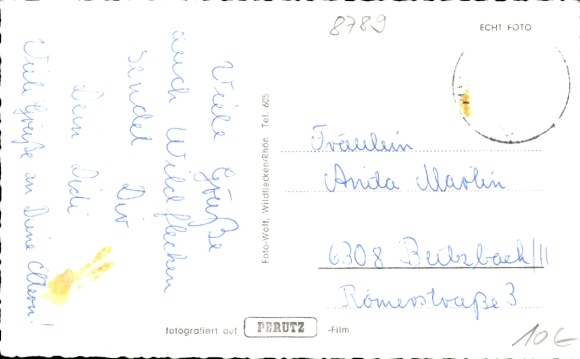 8789
ECHT FOTO
Viele Grüße
auch Wildflecken
sendet Dir
Dein Didi
Viele Grüße an Deine Eltern!
Foto-Wolf, Wildflecken/Rhön Tel. 605
Fräulein
Anita Martin
6308 Butzbach/11
Römerstraße 3
fotografiert auf PERUTZ -Film
10€